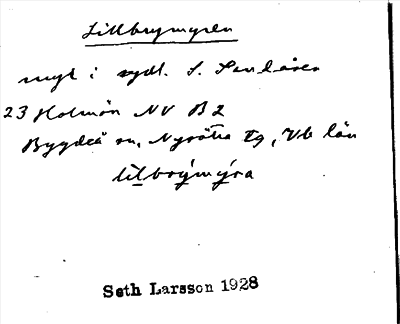 Lillbrymyren
myr i sydl. S. Sandåsen
23 Holmön NV B2
Bygdeå sn, Nysätra tg, Vb län
lilbrýmýra
Seth Larsson 1928